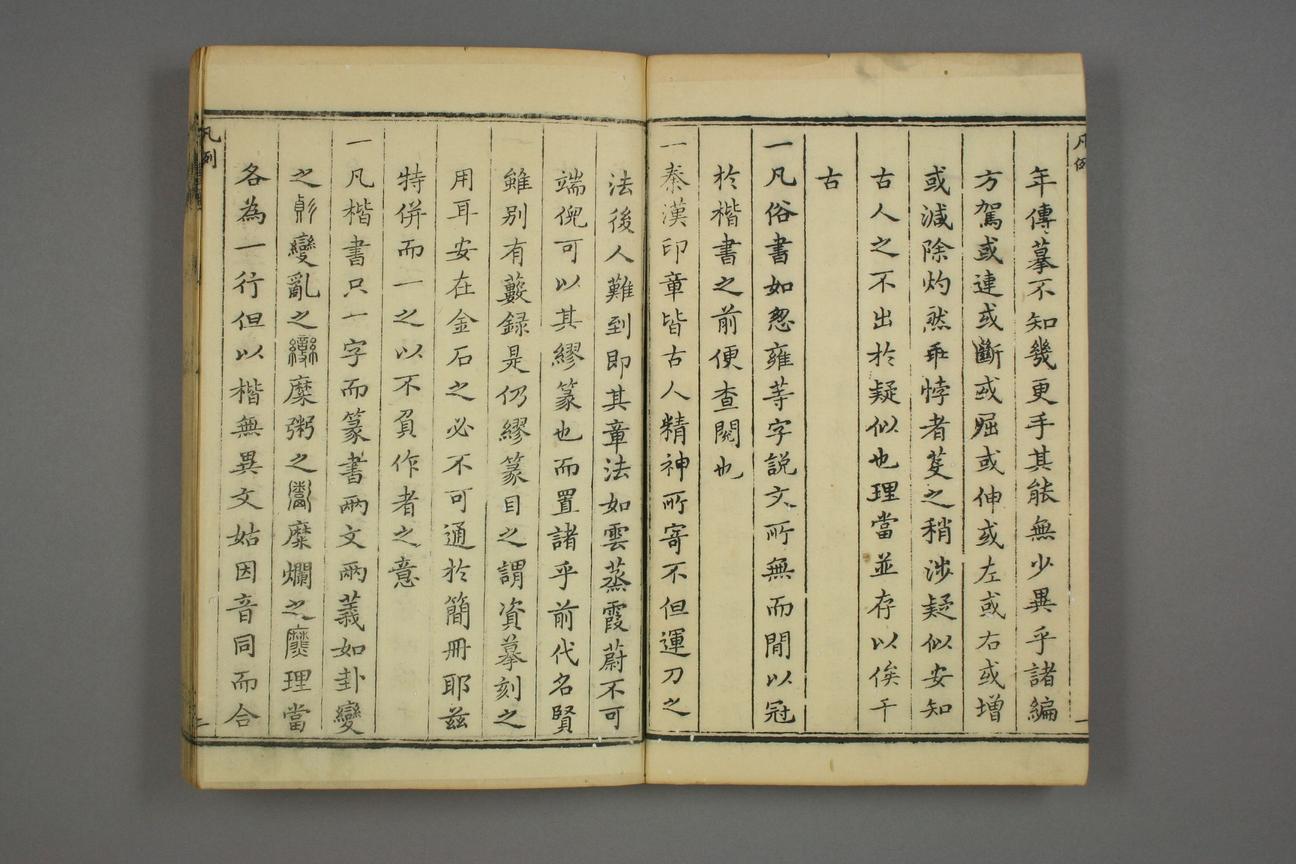 凡例
年傳摹不知幾更手其能無少異乎諸編
方駕或連或斷或屈或伸或左或右或增
或減除灼然乖悖者芟之稍涉疑似安知
古人之不出於疑似也理當並存以俟千
古
一凡俗書如怱雍等字說文所無而閒以冠
於楷書之前便查閱也
一秦漢印章皆古人精神所寄不但運刀之
法後人難到即其章法如雲蒸霞蔚不可
端倪可以其繆篆也而置諸乎前代名賢
雖別有藂録是仍繆篆目之謂資摹刻之
用耳安在金石之必不可通於簡冊耶茲
特併而一之以不負作者之意
一凡楷書只一字而篆書兩文兩義如卦變
之變亂之糜粥之糜爛之理當
各為一行但以楷無異文姑因音同而合
凡例
二